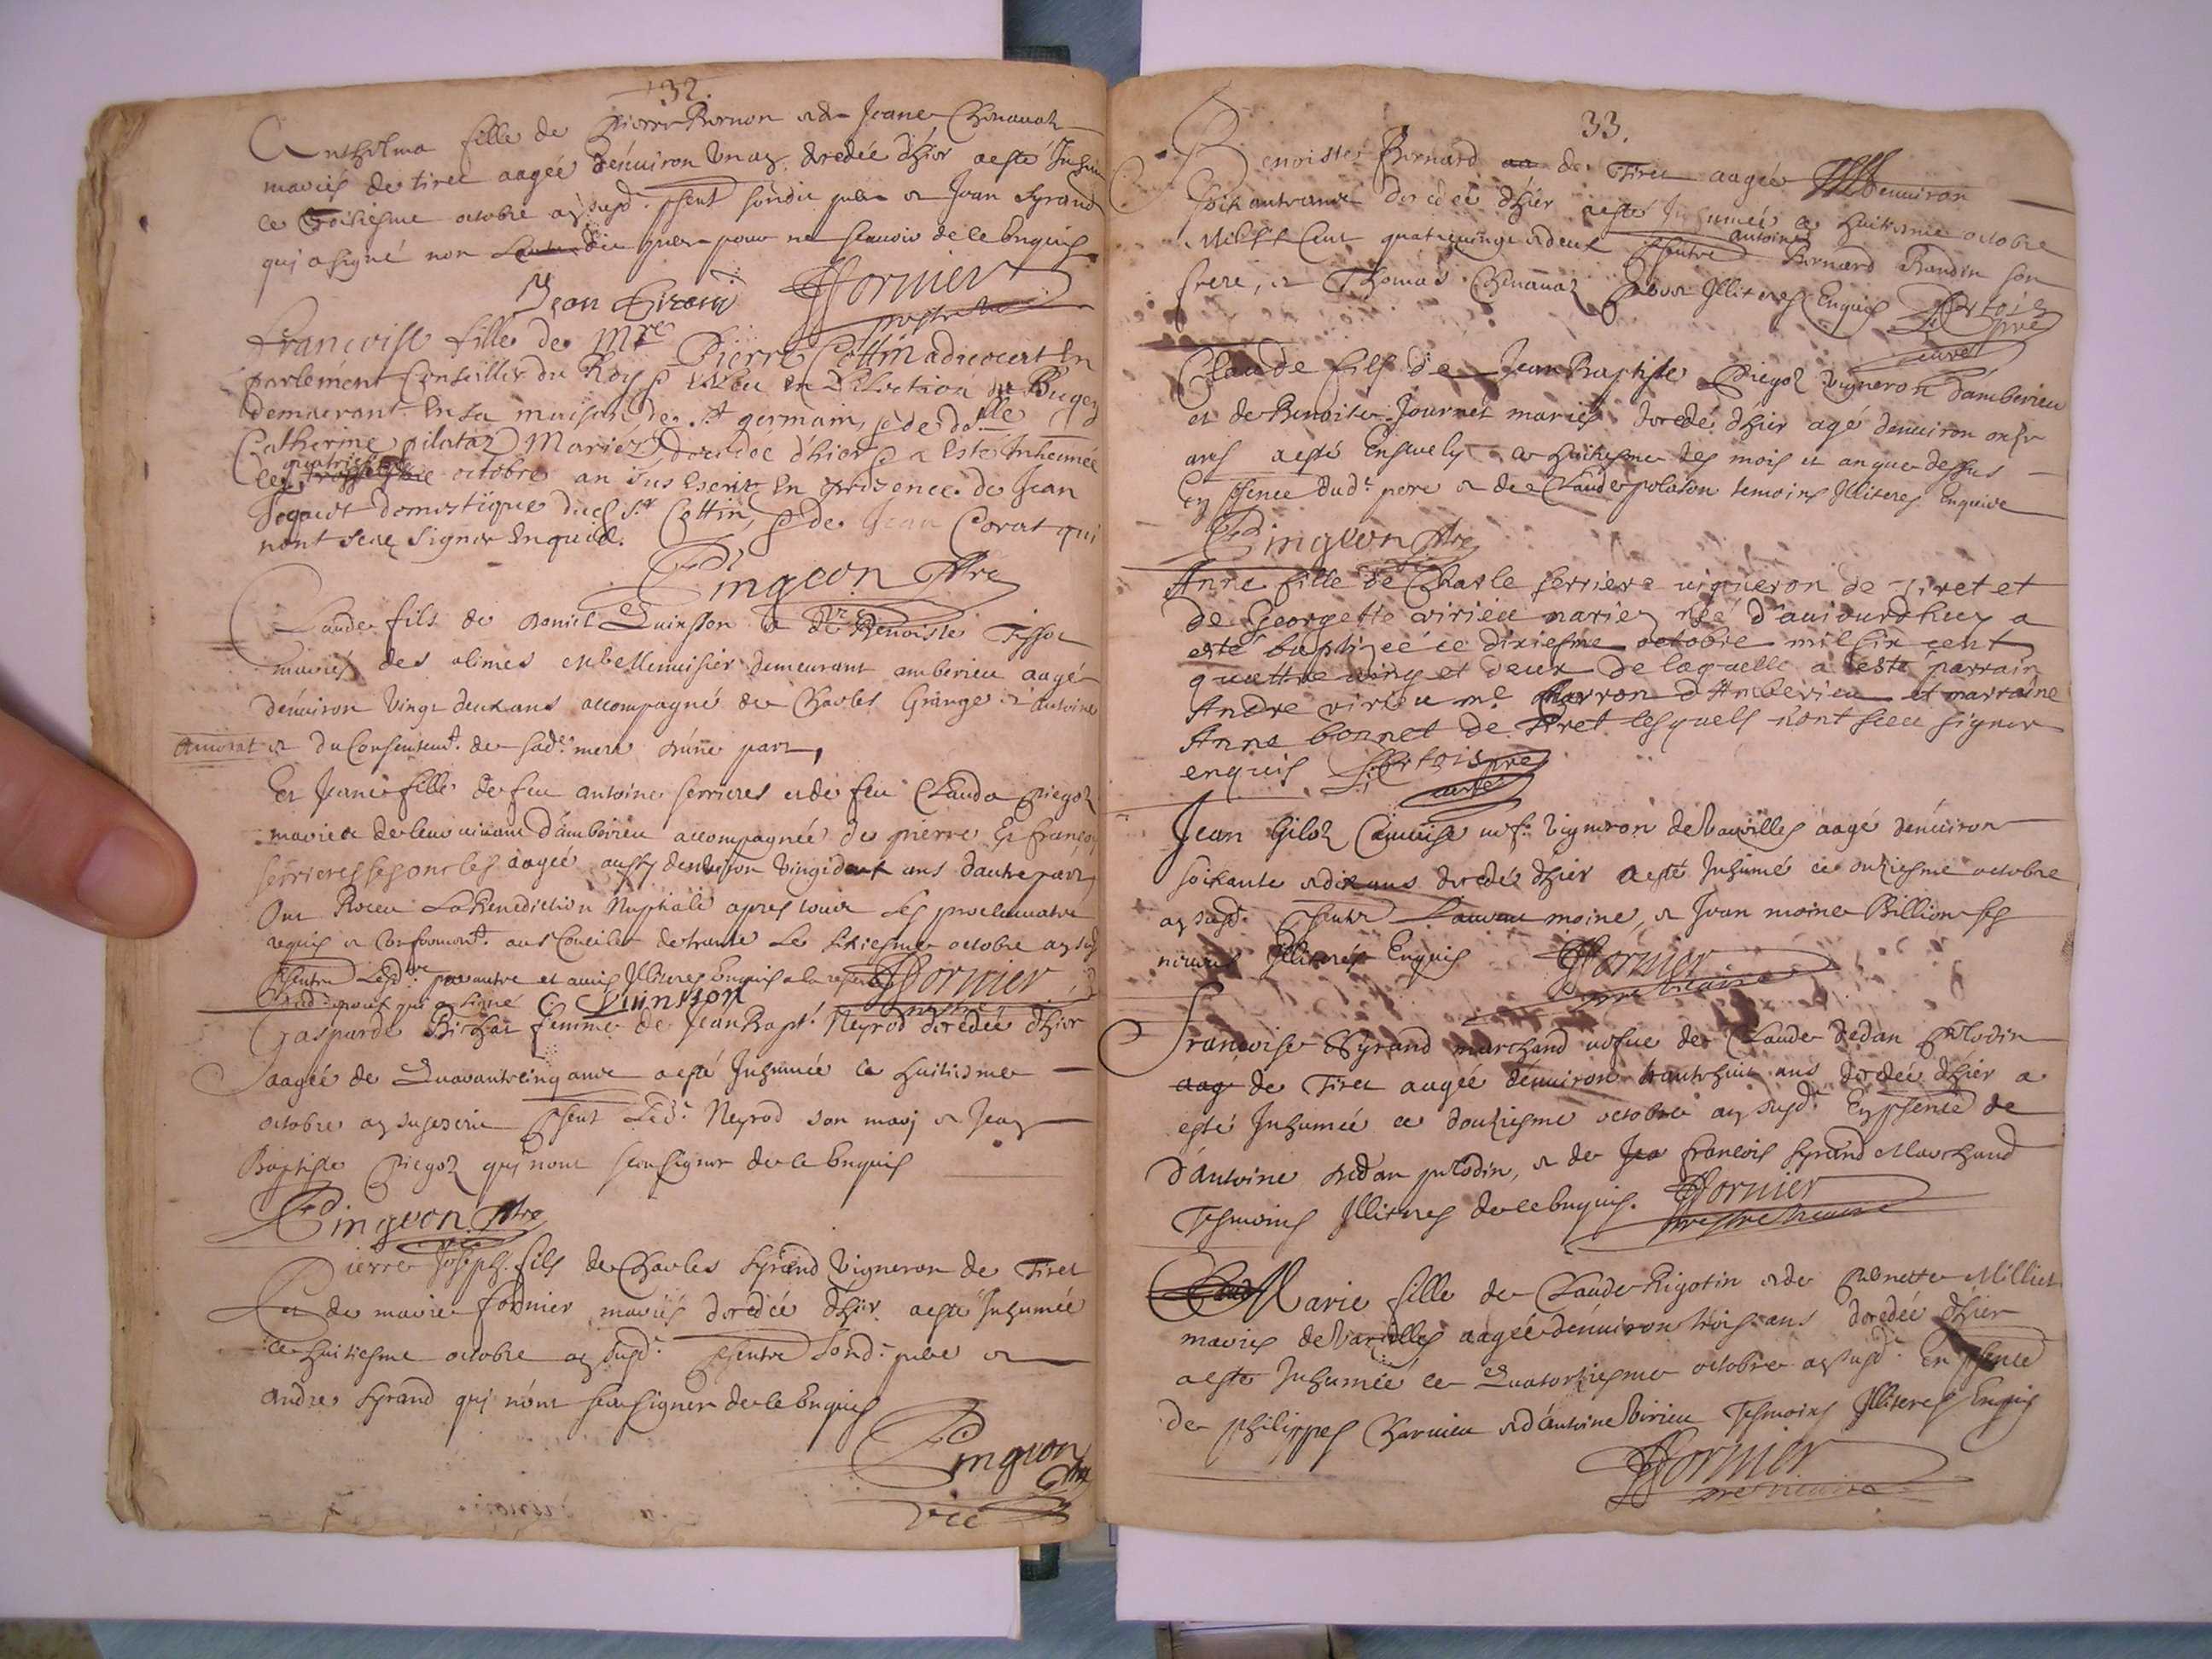 32.
Antholma fille de Pierre Bernon et de Jeane Chenavaz
mariés de tiret aagée denviron un an decedée d'hier a esté Inhumée
ce troisiesme octobre an susd. pnt sondit pere et Jean Syrand
qui a signé non dit pere pour ne scavoir de ce enquis
Jean Sirand Hornier
Françoise fille de Mre Pierre Cottin advocat En
parlement Conseiller du Roy Esleu En Eslection de Bugey
demeurant En sa maison de St germain, & de dlle
Catherine pilataz Mariéz, decedée d'hier & a Esté Inhumée
le quatriesme octobre an sus Escrit En presence de Jean
domestique dud. Sr Cottin, & de Jean Corat qui
n'ont sceu Signer Enquis.
Pingeon Ptre
Claude fils de Daniel Quinsson et de Benoiste Tissot
mariés des alimes demeurant amberieu aagé
d'environ vingt deux ans accompagné de Charles Grange et antoine
amorat et du Consentemt. de sade. mere d'une part,
Et Jeane fille de feu antoine serrieres et de feu Clauda Piegoz
mariés de leur vivant d'amberieu accompagnée de pierre Et françois
serrieres ses oncles aagée aussy denviron vingt deux ans d'autre part
Ont Receu La Benediction Nuptiale apres toute les proclamatns
requis et Conformemt. aux Conciles de trante Le sixiesme octobre an susd
psentn Lesd. parantre et amis Illiteres Enquis a la reserve
dud. epoux qui a signé C. Quinsson Hornier
Gasparde Bichat femme de Jean Bapt. Neyrod decedée d'hier
aagée de Quarante cinq ans a esté Inhumée ce huitiesme
octobre an susescrit psent Led. Neyrod son mary et Jean
Baptiste Piegoz qui nont sceu signer de ce Enquis
Pingeon Ptre
vic
Pierre Joseph fils de Charles Syrand Vigneron de Tiret
Et de marie fornier mariés decedée d'hier a esté Inhumée
ce huitiesme octobre an susd. psentn Sond. pere et
andre Syrand qui n'ont sceu signer de ce enquis
Pingeon Ptre
vic
33.
Benoiste Bernard de Tiret aagée denviron
soixante ans decedée d'hier a esté Inhumée ce huitiesme octobre
Mil six Cent quatre vingt et deux psentn antoine Bernard Bandin son
frere, et Thomas Chenavaz Illiteres Enquis Bertois
pre
curé
Claude fils de Jean Baptiste Piegoz vigneron d'amberieu
et de Benoite Journet mariés decedé d'hier agé denviron onze
ans a esté Ensevely ce huitiesme des mois et an que dessus
En psence dud. pere et de Claude poloson temoins Illiteres Enquise
Pingeon Ptre
Anne fille de Charle serriere vigneron de Tiret et
de Georgette virieu mariez née d'aujourdhuy a
esté baptizée ce dixiesme octobre mil six cent
quattre vingt et deux de laquelle a esté parrain
Andre virieu me Charron d'Amberieu et marraine
Anne bonnet de Tiret lesquels n'ont sceu signer
enquis Bertois pre
curé
Jean Giloz vigneron de Vareilles aagé denviron
soixante et dix ans decedé d'hier a esté Inhumé ce onziesme octobre
an susd. psentn moine, et Jean moine Billion ses
neveux Illiterés Enquis Hornier
pre vicaire
Françoise Syrand marchand vefve de Claude dedan Palodin
de Tiret aagée denviron trante huit ans decedée d'hier a
esté Inhumée ce douziesme octobre an susd. En psence de
d'antoine dedan palodin, et de françois Syrand Marchand
Tesmoins Illiteres de ce enquis. Hornier
prestre vicaire
Marie fille de Claude Rigotin et de Milliet
mariés de Vareilles aagée denviron trois ans decedée d'hier
a esté Inhumée ce Quatorziesme octobre an susd. En psence
de philippes Charvieu et d'antoine Virieu Tesmoins Illiteres Enquis
Hornier
pre vicaire